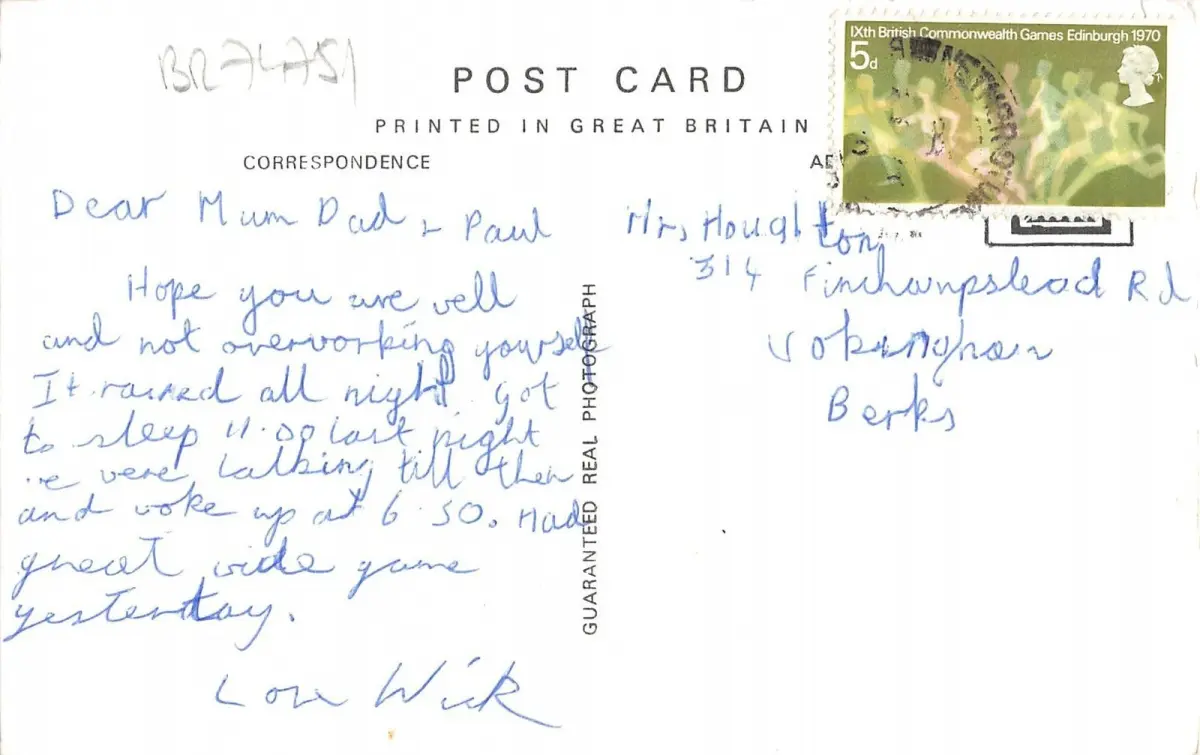 BR74751
POST CARD
PRINTED IN GREAT BRITAIN
CORRESPONDENCE
IXth British Commonwealth Games Edinburgh 1970
5d
Dear Mum Dad + Paul
Hope you are well
and not overworking yourself
It rained all night. Got
to sleep 11.00 last night
we were talking till then
and woke up at 6.50. Had
great wide game
yesterday.
Love Wick
GUARANTEED REAL PHOTOGRAPH
Mr, Houghton,
314 Finchampstead Rd
Wokingham
Berks